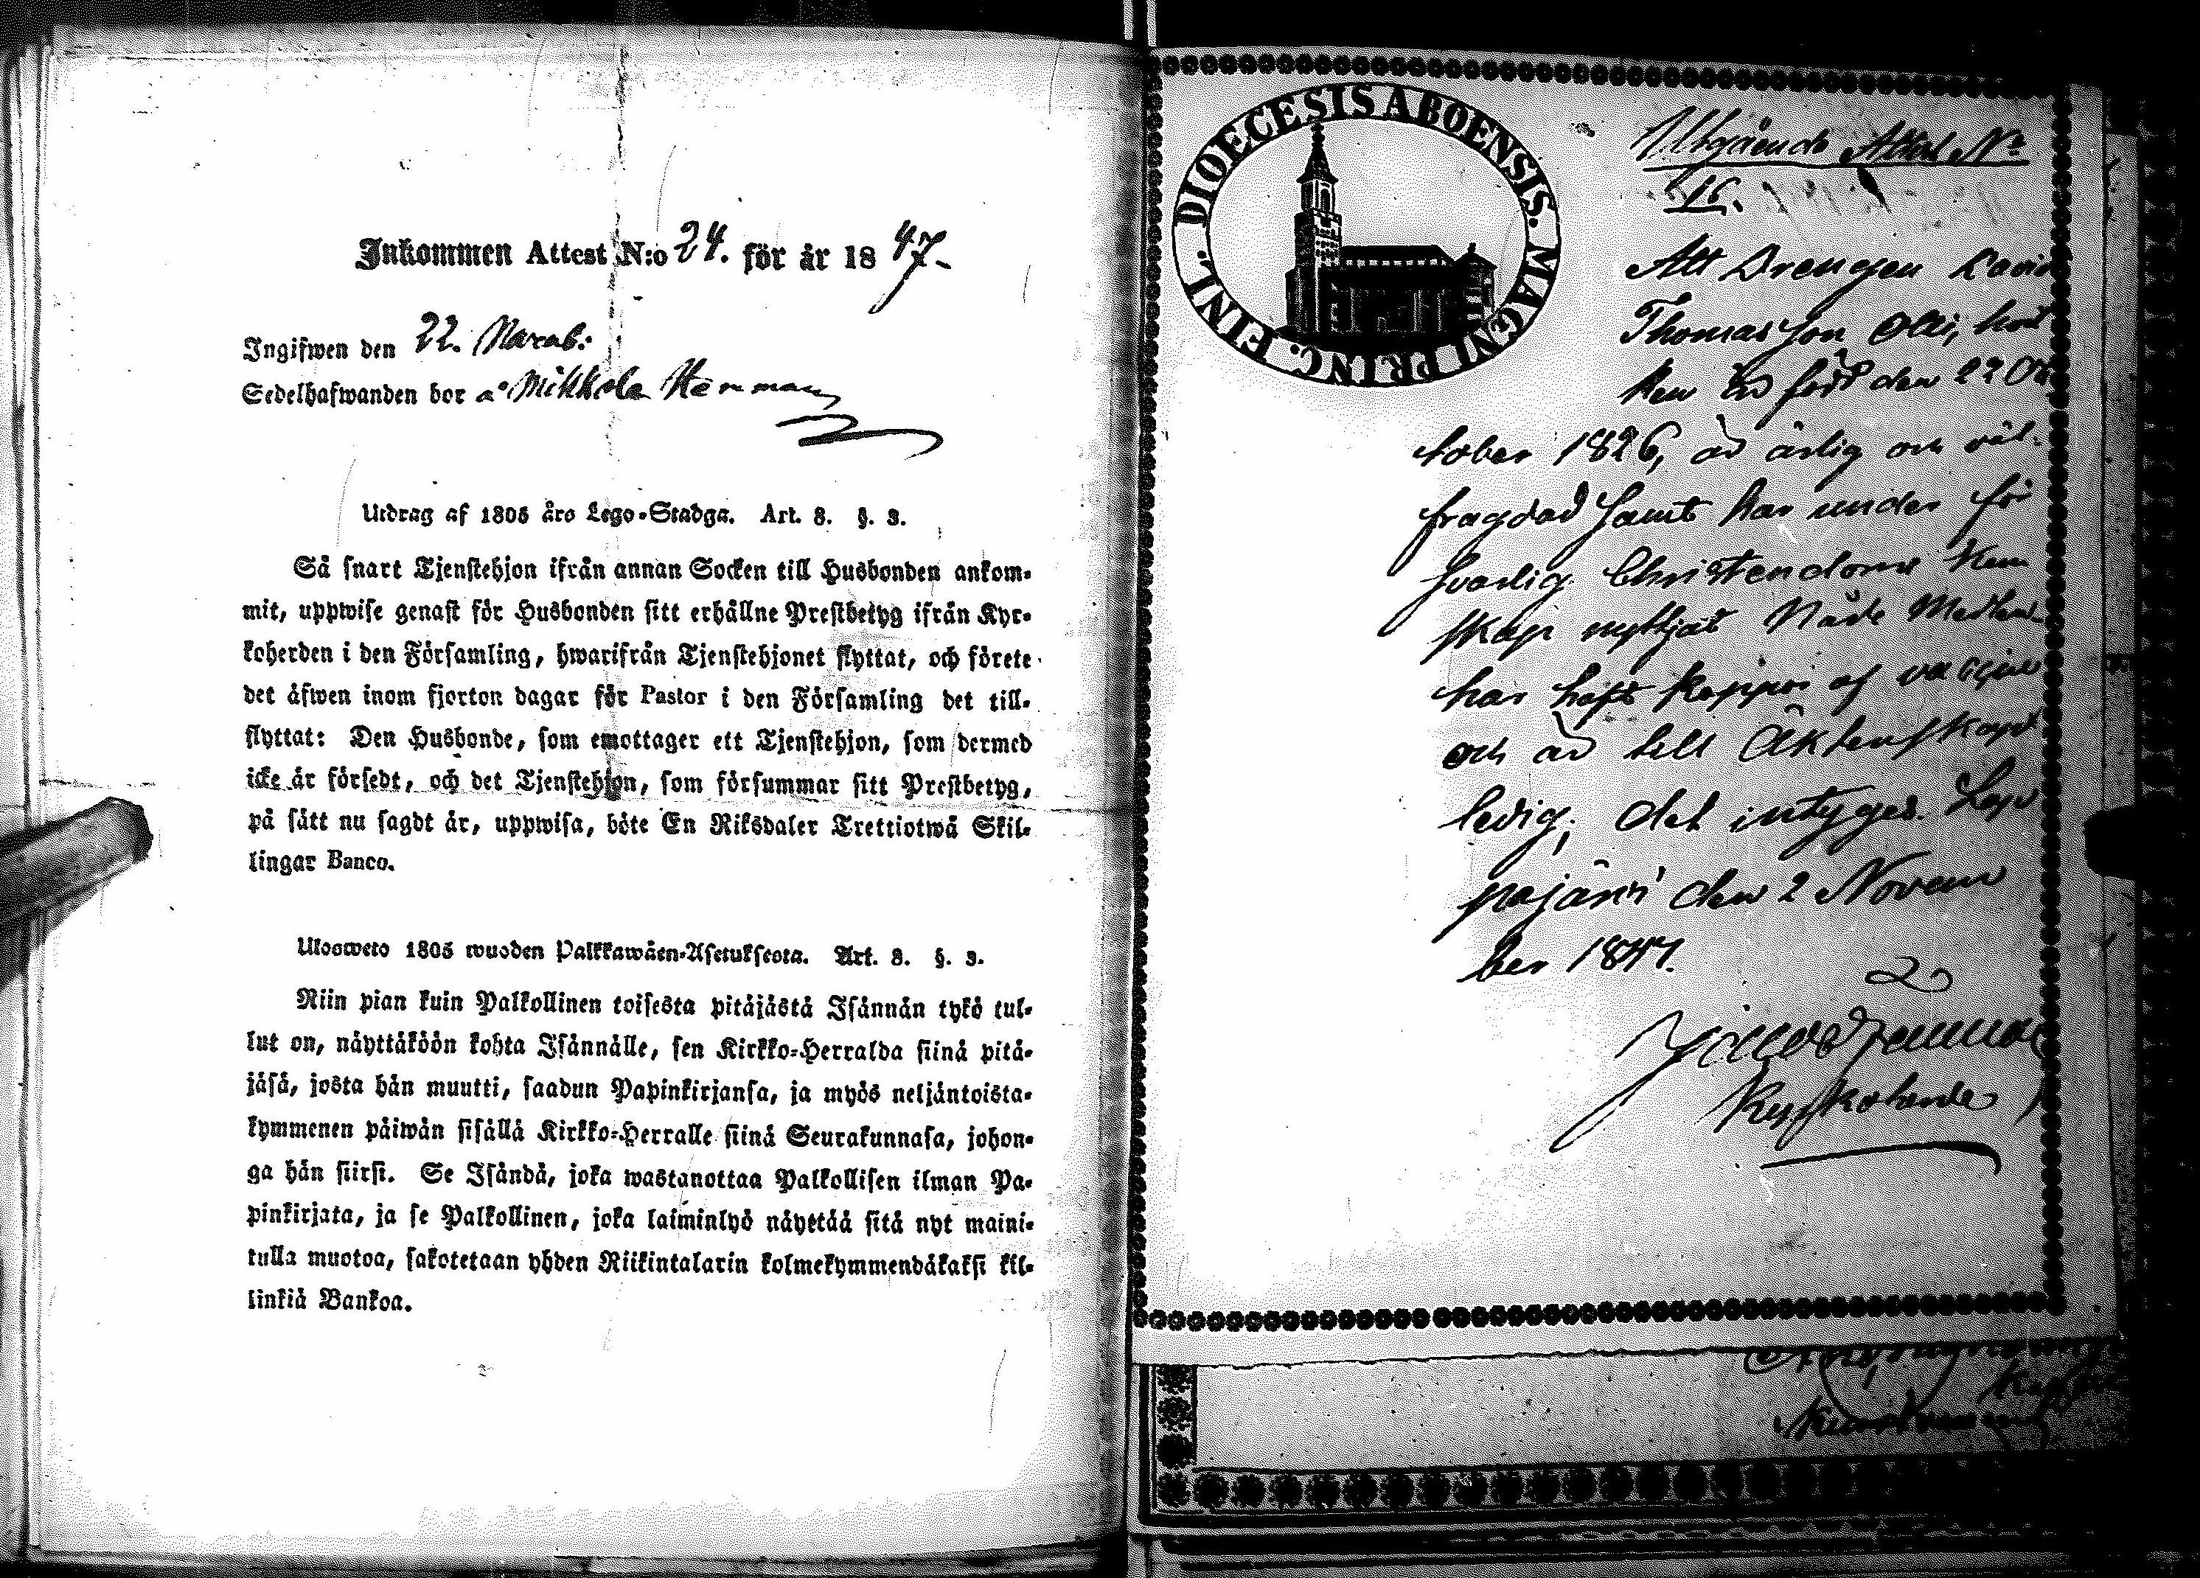 Inkommen Attest N:o 24. för år 1847.
Ingifwen den 22. Novemb:
Sedelhafwanden bor å Mikkola Hemman
Utdrag af 1805 års Lego-Stadga. Art. 8. §. 3.
Så snart Tjenstehjon ifrån annan Socken till Husbonden ankom-
mit, uppwise genast för Husbonden sitt erhållne Prestbetyg ifrån Kyr-
koherden i den Församling, hwarifrån Tjenstehjonet flyttat, och förete
det äfwen inom fjorton dagar för Pastor i den Församling det till-
flyttat: Den Husbonde, som emottager ett Tjenstehjon, som dermed
icke är försedt, och det Tjenstehjon, som försummar sitt Prestbetyg,
på sätt nu sagdt är, uppwisa, böte En Riksdaler Trettiotwå Skil-
lingar Banco.
Ulosweto 1805 wuoden Palkkawäen-Asetuksesta. Art. 8. §. 3.
Niin pian kuin Palkollinen toisesta pitäjästä Isännän tykö tul-
lut on, näyttäköön kohta Isännälle, sen Kirkko-Herralda siinä pitä-
jäsä, josta hän muutti, saadun Papinkirjansa, ja myös neljäntoista-
kymmenen päiwän sisällä Kirkko-Herralle siinä Seurakunnasa, johon-
ga hän siirsi. Se Isändä, joka wastanottaa Palkollisen ilman Pa-
pinkirjata, ja se Palkollinen, joka laiminlyö näyttää sitä nyt maini-
tulla muotoa, sakotetaan yhden Riikintalarin kolmekymmendäkaksi kil-
linkiä Bankoa.
DIOECESIS ABOENSIS. MAGNI PRINC. FINL.
Utgående Attest No
16.
Att Drengen David
Thomasson Olli, hvil
ken är född den 22 Oc
tober 1826, är ärlig och väl-
fragdad samt har under för
svarlig Christendoms Kun
skap nyttjat Nåde Medlen
har haft koppor af vaccine
och är till Äktenskapet
ledig; det intyges. Lap
pajärvi den 2 Novem
ber 1847.
Kyrkoherde